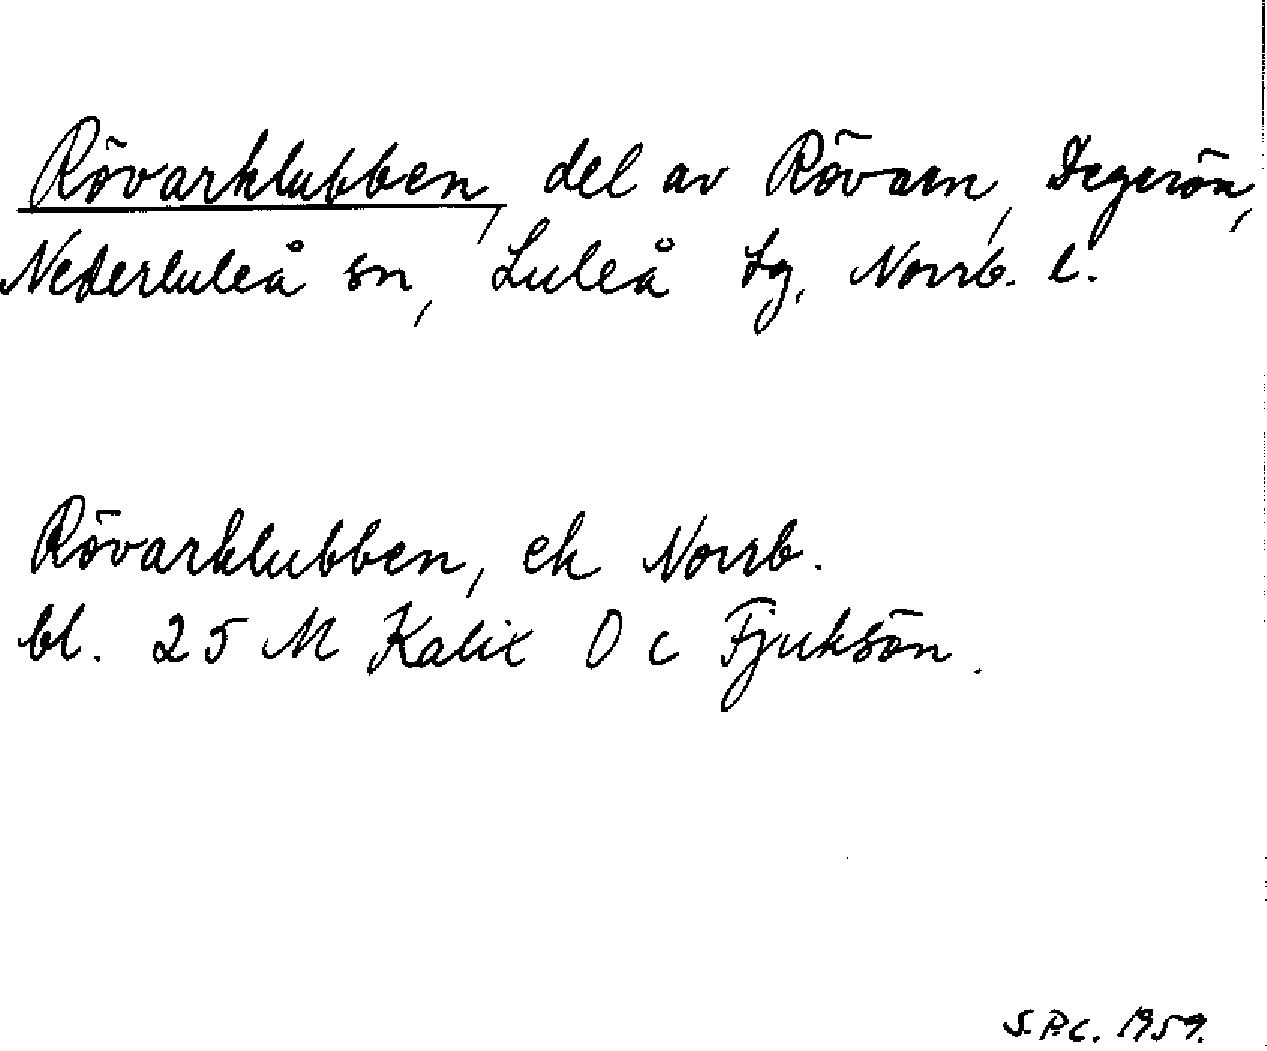 Rövarklubben, del av Rövarn, Degerön,
Nederluleå sn, Luleå tg, Norrb. l.
Rövarklubben, ek Norrb.
bl. 25 M Kalix O c Fjuksön.
S.P.C. 1959.